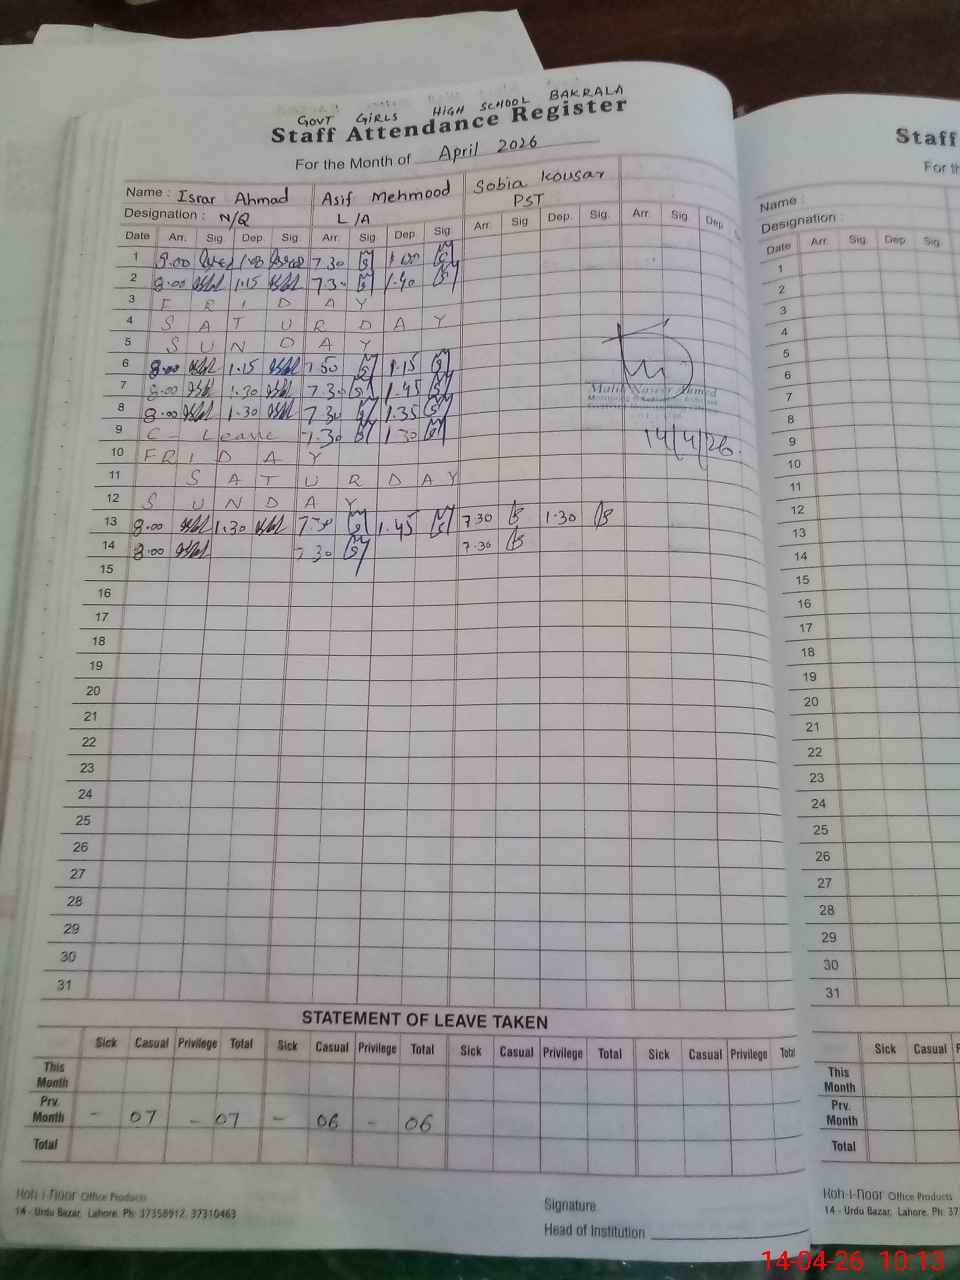 GOVT GIRLS HIGH SCHOOL BAKRALA
Staff Attendance Register
For the Month of April 2026
Name : Israr Ahmad Asif Mehmood Sobia Kousar
Designation : N/Q L/A PST
Date Arr. Sig. Dep. Sig. Arr. Sig. Dep. Sig. Arr. Sig. Dep. Sig. Arr. Sig. Dep.
1 8.00 1.00 7.30 1.00
2 8.00 1.15 7.30 1.40
3 F R I D A Y
4 S A T U R D A Y
5 S U N D A Y
6 8.00 1.15 7.30 1.15
7 8.00 1.30 7.30 1.45
8 8.00 1.30 7.30 1.35
9 C- Leave 7.30 1.30
10 F R I D A Y
11 S A T U R D A Y
12 S U N D A Y
13 8.00 1.30 7.30 1.45 7.30 1.30
14 8.00 7.30 7.30
15
16
17
18
19
20
21
22
23
24
25
26
27
28
29
30
31
Malik Naseer Ahmed
14/4/26.
STATEMENT OF LEAVE TAKEN
Sick Casual Privilege Total Sick Casual Privilege Total Sick Casual Privilege Total Sick Casual Privilege Total
This Month
Prv. Month - 07 - 07 - 06 - 06
Total
Koh-i-noor Office Products
14 - Urdu Bazar, Lahore. Ph: 37358912, 37310463
Signature
Head of Institution
Staff
For th
Name :
Designation :
Date Arr. Sig. Dep. Sig.
1
2
3
4
5
6
7
8
9
10
11
12
13
14
15
16
17
18
19
20
21
22
23
24
25
26
27
28
29
30
31
Sick Casual P
This Month
Prv. Month
Total
Koh-i-noor Office Products
14 - Urdu Bazar, Lahore. Ph: 37
14-04-26 10:13